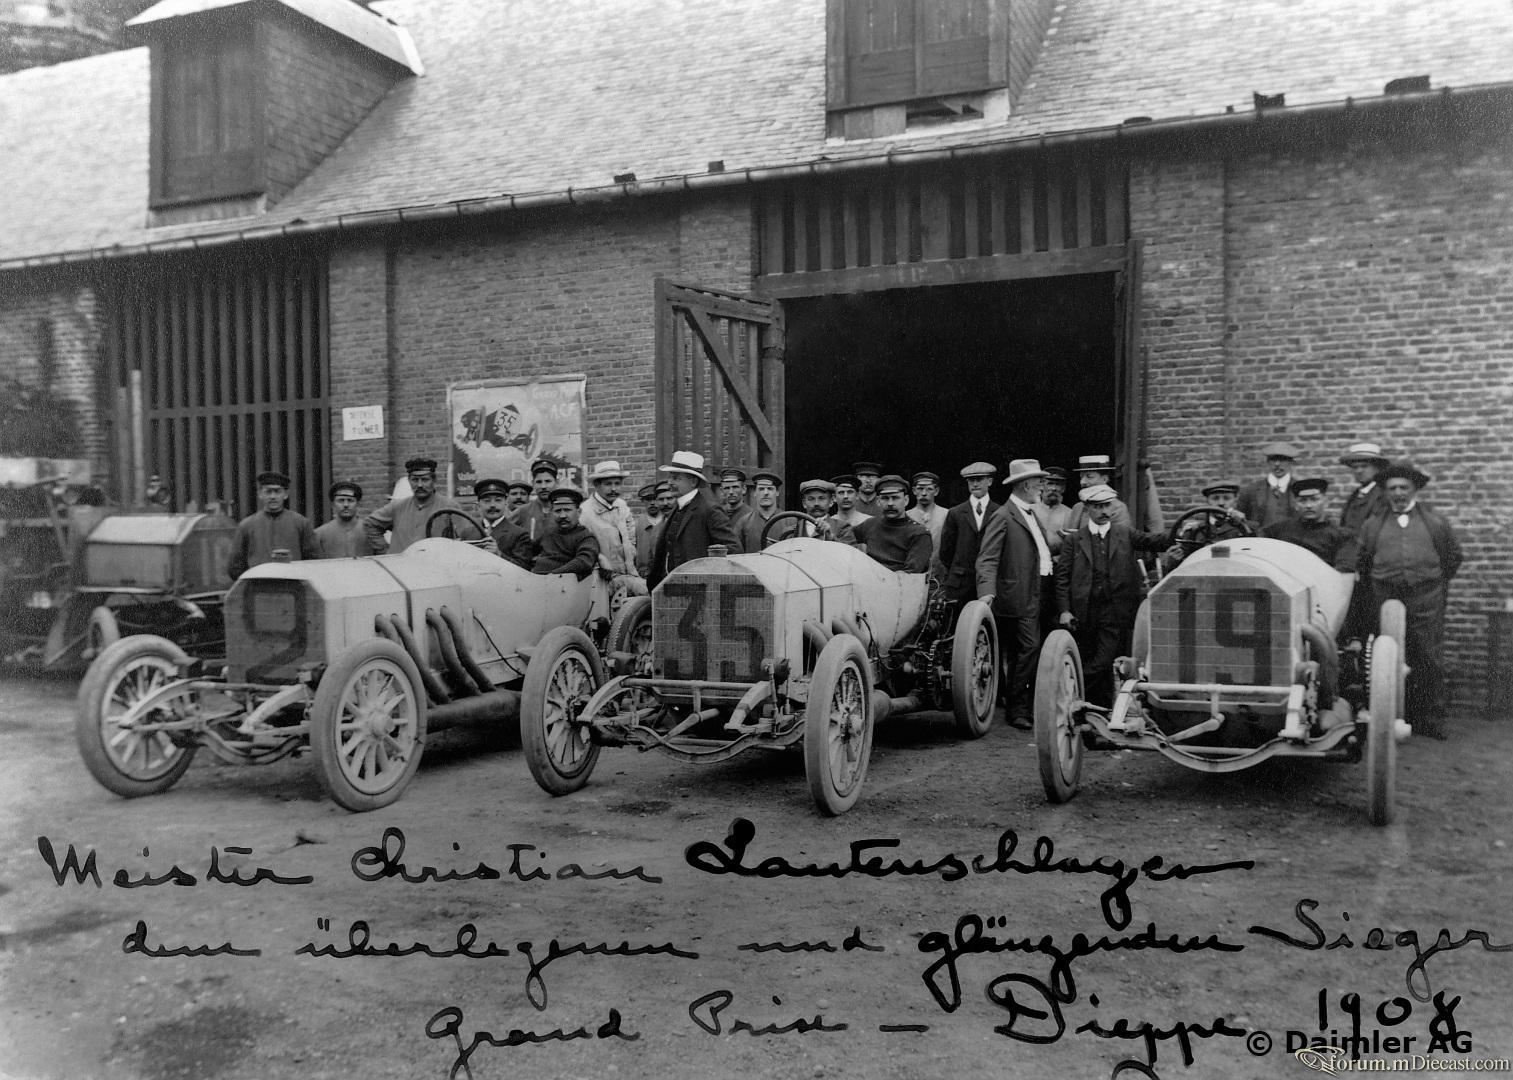 A.C.F.
35
DÉFENSE
DE
FUMER
2
35
19
Meister Christian Lautenschlager
dem überlegenen und glänzenden Sieger
Grand Prise – Dieppe 1908
© Daimler AG
forum.mDiecast.com